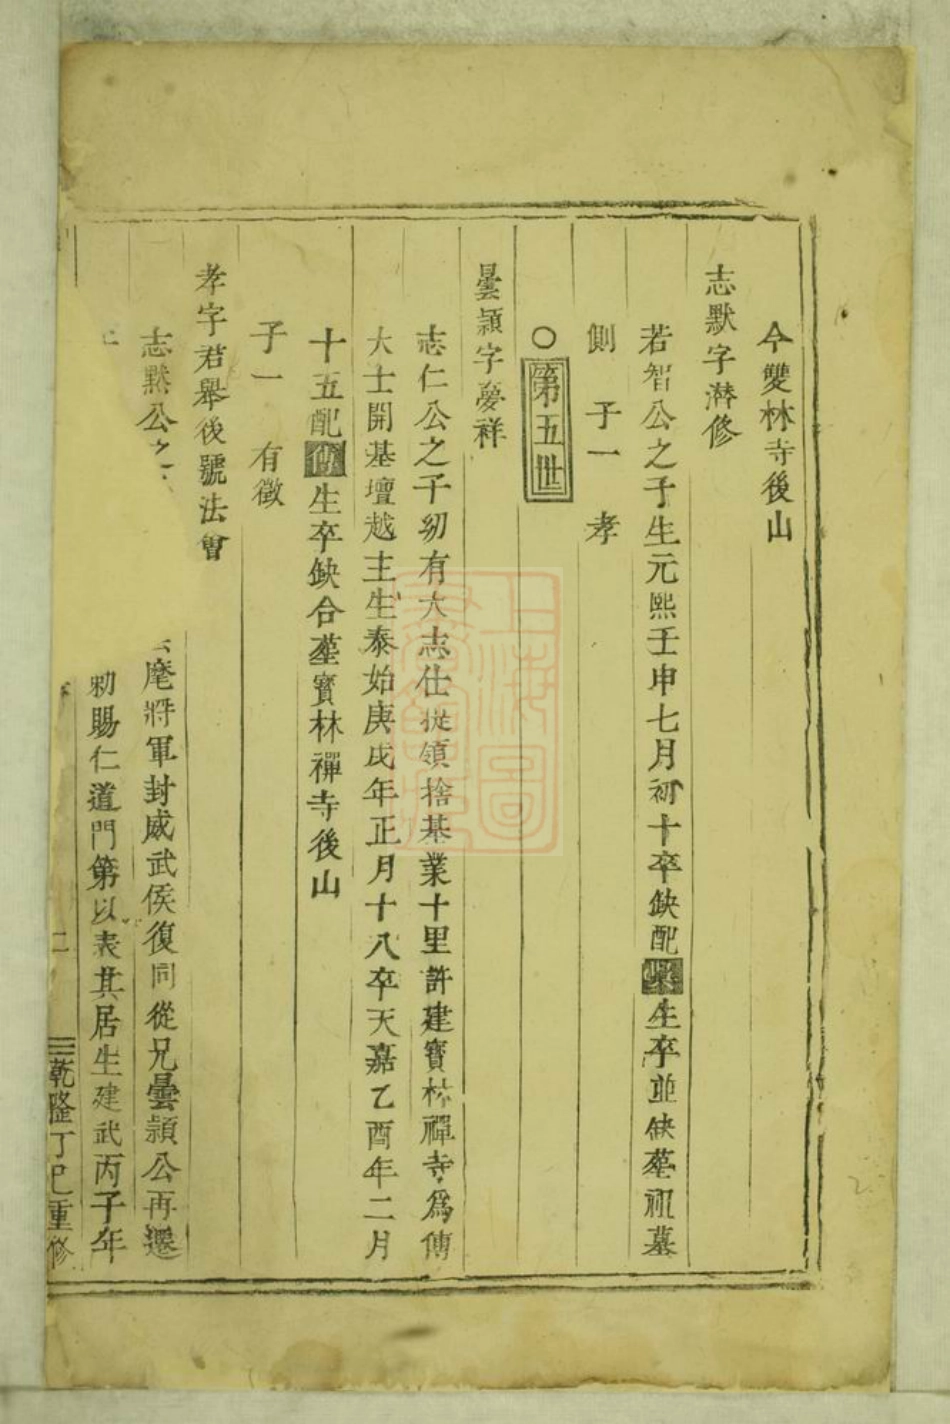 今雙林寺後山
志默字潛修
若智公之子生元熙壬申七月初十卒缺配生卒並缺墓祖墓
側 子一 孝
○第五世
曇頴字夢祥
志仁公之子初有大志仕從領捨基業十里許建寶林禪寺爲傅
大士開基壇越主生泰始庚戌年正月十八卒天嘉乙酉年二月
十五配傅生卒缺合墓寶林禪寺後山
子一 有徵
孝字君舉後號法曾
志默公之
麾將軍封威武侯復同從兄曇頴公再遷
勅賜仁道門第以表其居生建武丙子年
二
乾隆丁巳重修
上海圖書館藏